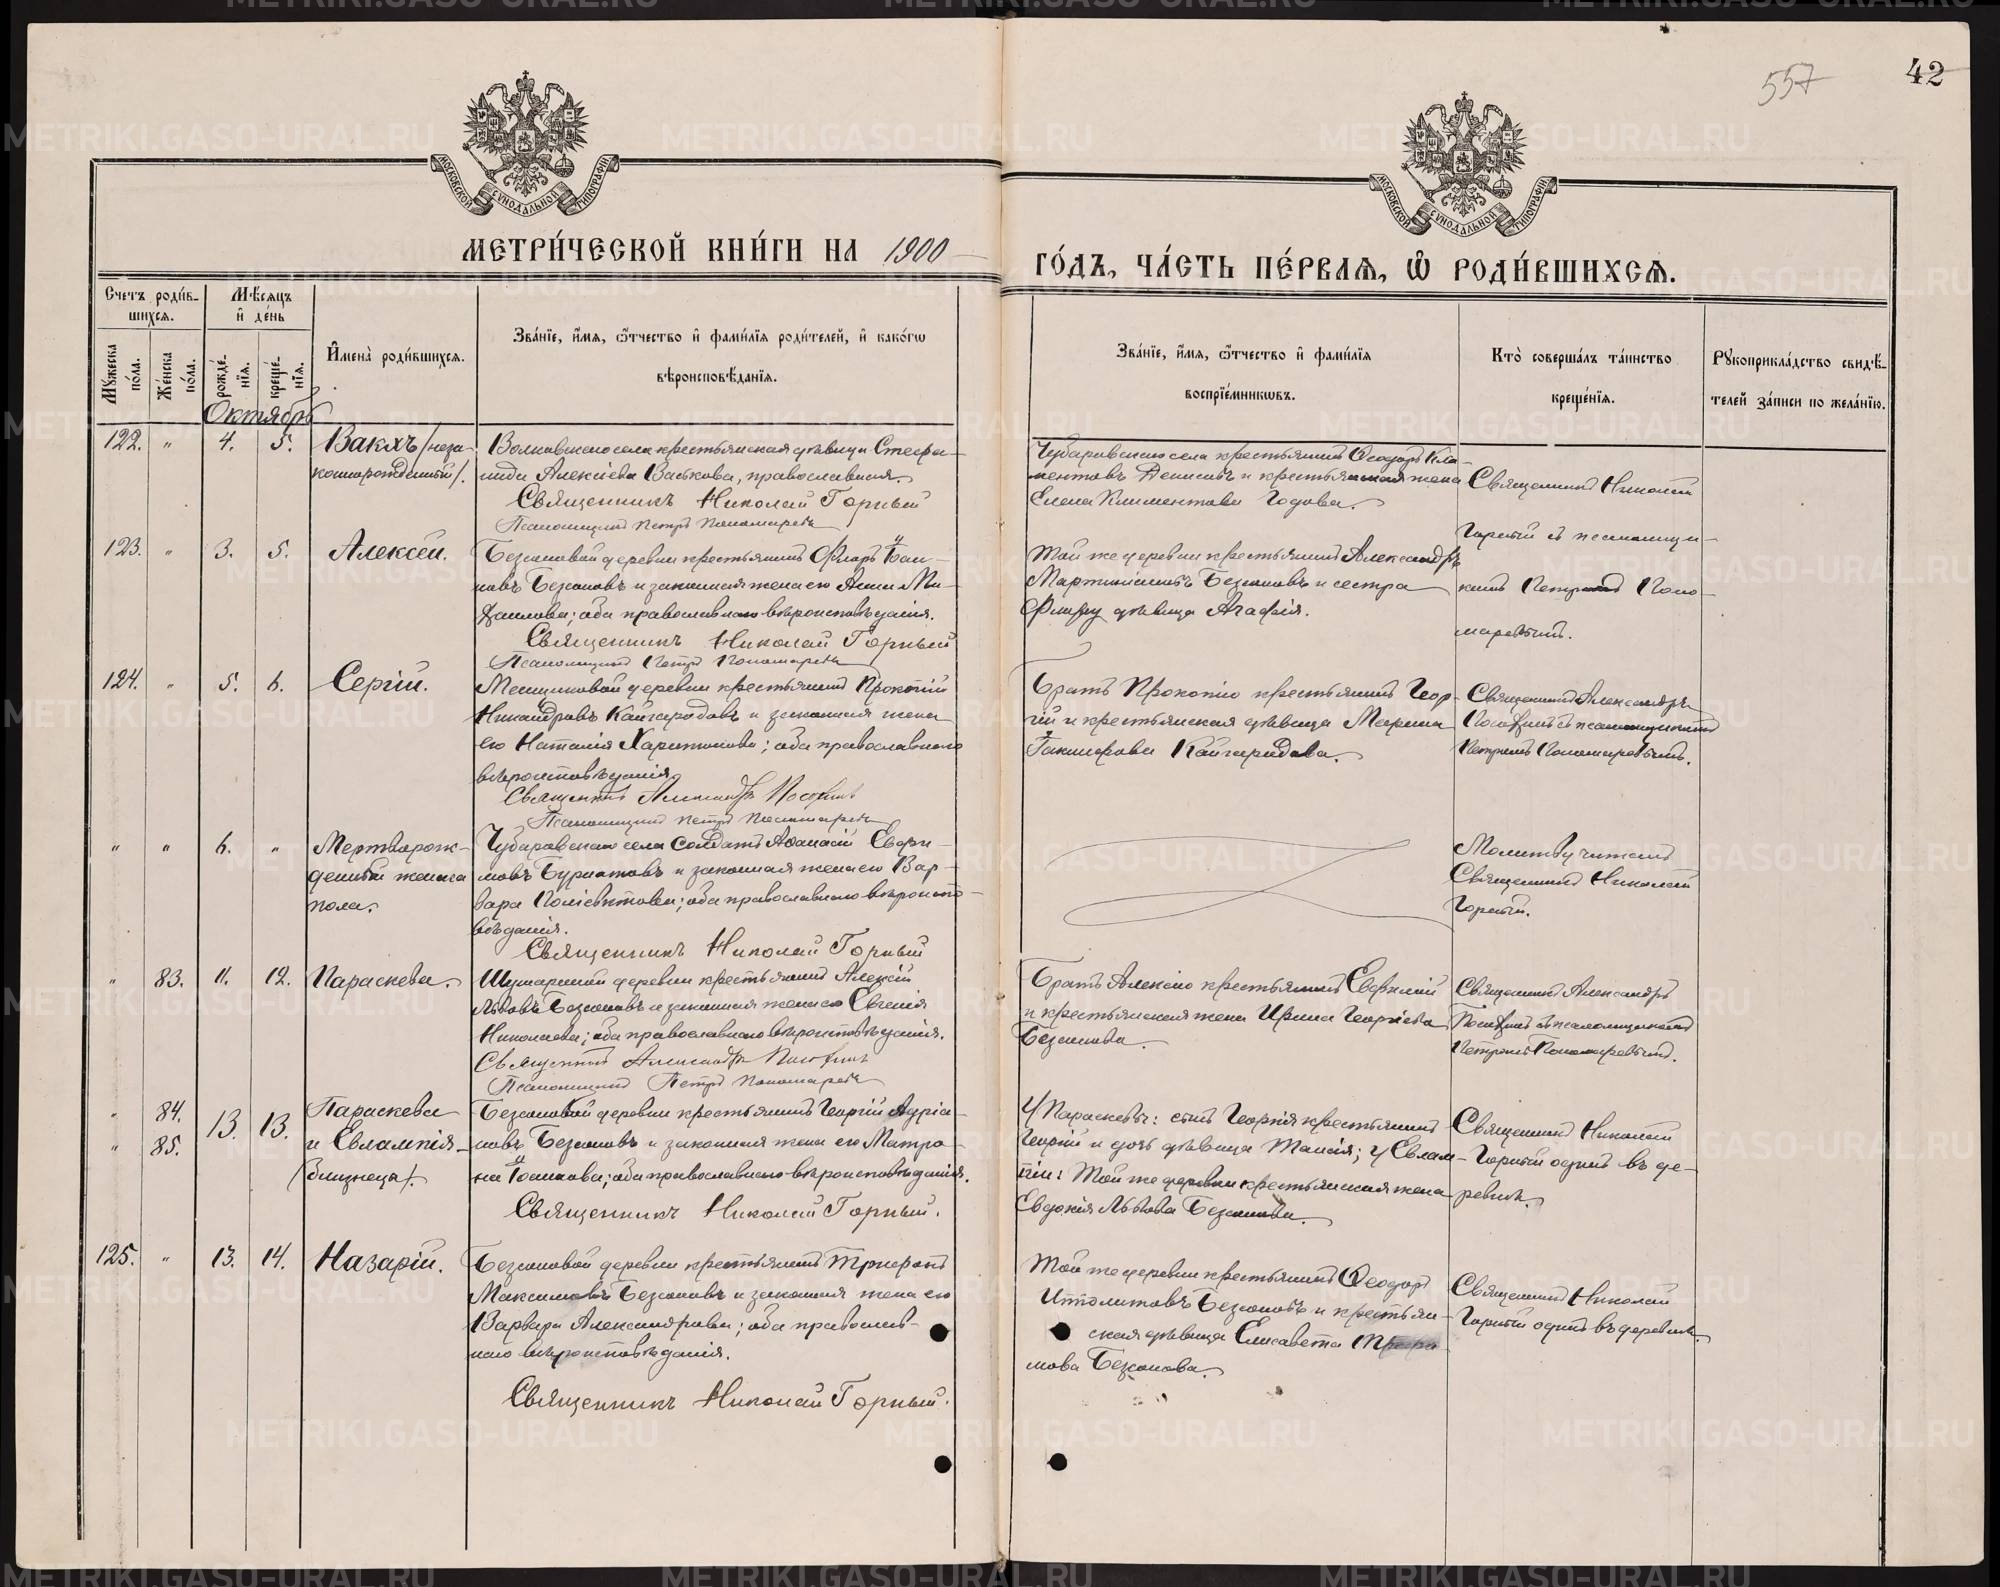 557
42
МОСКОВСКОЙ СѴНОДАЛЬНОЙ ТИПОГРАФІИ
МОСКОВСКОЙ СѴНОДАЛЬНОЙ ТИПОГРАФІИ
МЕТРИ́ЧЕСКОЙ КНИ́ГИ НА 1900
ГО́ДЪ, ЧА́СТЬ ПЕ́РВАѦ, Ѿ РОДИ́ВШИХСѦ.
Счетъ роди́в-
шихсѧ.
Мѣсѧцъ
и҆ де́нь
Мꙋжеска по́ла.
Же́нска по́ла.
рожде́-нїѧ.
креще́-нїѧ.
И҆мена̀ роди́вшихсѧ.
Зва́нїе, и҆́мѧ, ѻ҆́тчество и҆ фами́лїѧ роди́телей, и҆ како́гѡ
вѣроисповѣ́данїѧ.
Зва́нїе, и҆́мѧ, ѻ҆́тчество и҆ фами́лїѧ
воспрїе́мникѡвъ.
Кто̀ соверша́лъ та́инство
креще́нїѧ.
Рꙋкоприкла́дство свидѣ́-
телей за́писи по жела́нїю.
Октябрь
122. " 4. 5. Вакхъ (неза-
коннорожденный).
Волковскаго села крестьянская дѣвица Стефа-
нида Алексіева Васькова, православная.
Священникъ Николай Горный
Псаломщикъ Петръ Пономаревъ
Чубаровскаго села крестьянинъ Ѳеодоръ Кли-
ментовъ Денисовъ и крестьянская жена
Елена Климентова Годова.
Священникъ Николай
Горный съ псаломщи-
комъ Петромъ Поно-
маревымъ.
123. " 3. 5. Алексѣй.
Безсоновой деревни крестьянинъ Флоръ Іоан-
новъ Безсоновъ и законная жена его Анна Ми-
хаилова; оба православнаго вѣроисповѣданія.
Священникъ Николай Горный
Псаломщикъ Петръ Пономаревъ
Той же деревни крестьянинъ Александръ
Мартиніановъ Безсоновъ и сестра
Флору дѣвица Агафія.
124. " 5. 6. Сергій.
Менщиковой деревни крестьянинъ Прокопій
Никандровъ Кайгородовъ и законная жена
его Наталія Харитонова; оба православнаго
вѣроисповѣданія.
Священникъ Александръ Посохинъ
Псаломщикъ Петръ Пономаревъ
Братъ Прокопію крестьянинъ Геор-
гій и крестьянская дѣвица Марина
Кайгородова.
Священникъ Александръ
Посохинъ съ псаломщикомъ
Петромъ Пономаревымъ.
" " 6. " Мертворож-
денный женска
пола.
Чубаровскаго села солдатъ Аѳанасій Евфи-
мовъ Бурматовъ и законная жена его Вар-
вара Поліевктова; оба православнаго вѣроиспо-
вѣданія.
Священникъ Николай Горный
Молитву читалъ
Священникъ Николай
Горный.
" 83. 11. 12. Параскева.
деревни крестьянинъ Алексій
Львовъ Безсоновъ и законная жена его Евгенія
Николаева; оба православнаго вѣроисповѣданія.
Священникъ Александръ Посохинъ
Псаломщикъ Петръ Пономаревъ
Братъ Алексію крестьянинъ Евфимій
и крестьянская жена Ирина Георгіева
Безсонова.
Священникъ Александръ
Посохинъ съ псаломщикомъ
Петромъ Пономаревымъ.
" 84. 13. 13. Параскева
" 85. и Евлампія
(близнецы).
Безсоновой деревни крестьянинъ Георгій Адріа-
новъ Безсоновъ и законная жена его Матро-
на Іоаннова; оба православнаго вѣроисповѣданія.
Священникъ Николай Горный.
У Параскевы: сынъ Георгія крестьянинъ
Георгій и дочь дѣвица Таисія; у Евлам-
піи: Той же деревни крестьянская жена
Евдокія Львова Безсонова.
Священникъ Николай
Горный одинъ въ де-
ревнѣ.
125. " 13. 14. Назарій.
Безсоновой деревни крестьянинъ Трифонъ
Максимовъ Безсоновъ и законная жена его
Варвара Александрова; оба православ-
наго вѣроисповѣданія.
Священникъ Николай Горный.
Той же деревни крестьянинъ Ѳеодоръ
Ипполитовъ Безсоновъ и крестьян-
ская дѣвица Елисавета
Безсонова.
Священникъ Николай
Горный одинъ въ деревнѣ.
METRIKI.GASO-URAL.RU